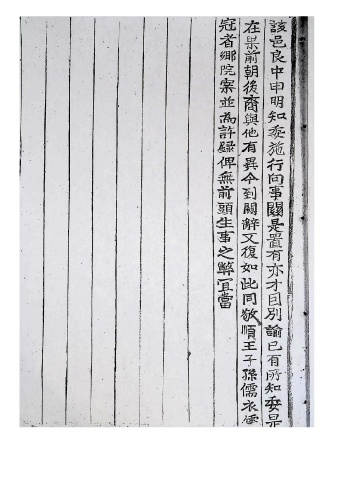 該邑良中申明知委施行向事關是置有亦才因別諭已有所知委是
在果前朝後裔與他有異今到關辭又復如此同敬順王子孫儒衣儒
冠者鄉院案並爲許錄俾無前頭生事之弊宜當